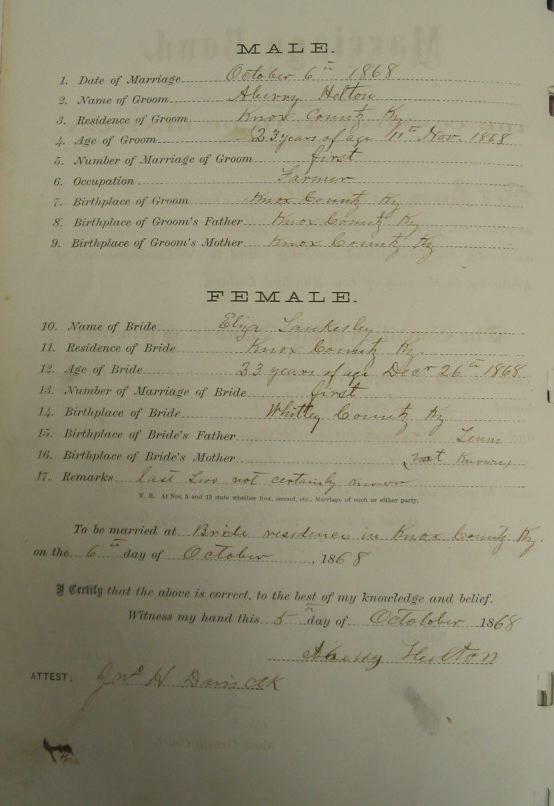 MALE.
1. Date of Marriage October 6th 1868
2. Name of Groom Aberry Helton
3. Residence of Groom Knox County Ky
4. Age of Groom 23 years of age 11th Nov. 1868
5. Number of Marriage of Groom first
6. Occupation Farmer
7. Birthplace of Groom Knox County Ky
8. Birthplace of Groom's Father Knox County Ky
9. Birthplace of Groom's Mother Knox County Ky
FEMALE.
10. Name of Bride Eliza
11. Residence of Bride Knox County Ky.
12. Age of Bride 33 years of age Decr 26th 1868
13. Number of Marriage of Bride first
14. Birthplace of Bride Whitley County Ky
15. Birthplace of Bride's Father Tenn
16. Birthplace of Bride's Mother not Known
17. Remarks last two not certainly known
N. B. At Nos. 5 and 13 state whether first, second, etc., Marriage of each or either party.
To be married at Bride residence in Knox County Ky.
on the 6th day of October, 1868
I Certify that the above is correct, to the best of my knowledge and belief.
Witness my hand this 5th day of Octolober 1868
Aberry Helton
ATTEST; Jno H Davis Clk